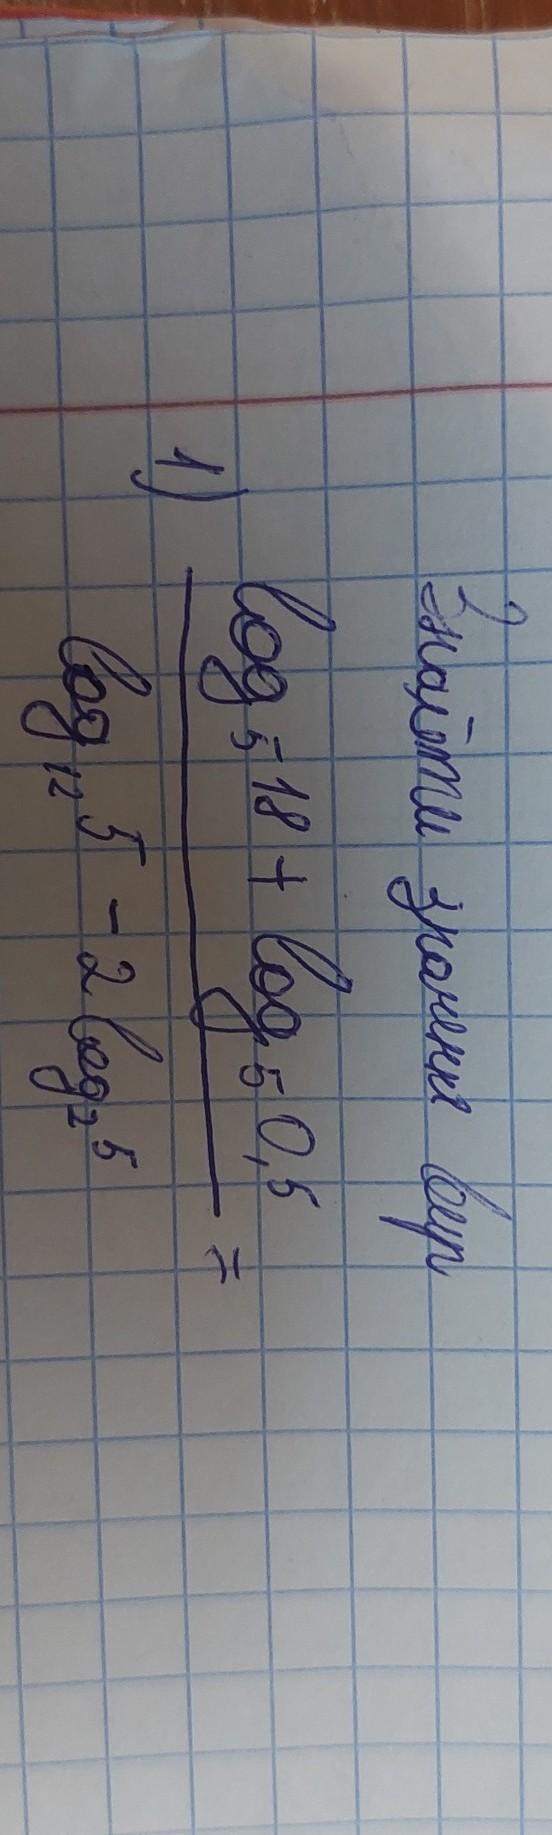 Знайти значення вир
1) log₅ 18 + log₅ 0,5
=
log₁₂ 5 - 2 log₂ 5